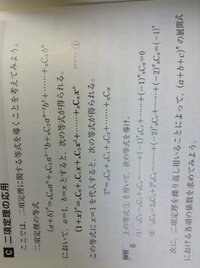 C 二項定理の応用
ここでは，二項定理に関する等式を導くことを考えてみよう。
二項定理の等式
(a+b)ⁿ=ₙC₀aⁿ+ₙC₁aⁿ⁻¹b+ₙC₂aⁿ⁻²b²+……+ₙCₙbⁿ
において，a=1，b=x とすると，次の等式が得られる。
(1+x)ⁿ=ₙC₀+ₙC₁x+ₙC₂x²+……+ₙCₙxⁿ ……①
この等式に x=1 を代入すると，次の等式が得られる。
2ⁿ=ₙC₀+ₙC₁+ₙC₂+……+ₙCₙ
8 上の等式①を用いて，次の等式を導け。
(1) ₙC₀−ₙC₁+ₙC₂−……+(−1)ⁿₙCₙ=0
(2) ₙC₀−2ₙC₁+2²ₙC₂−……+(−2)ⁿₙCₙ=(−1)ⁿ
次に，二項定理を繰り返し用いることによって，(a+b+c)ⁿ の展開式
における各項の係数を求めてみよう。